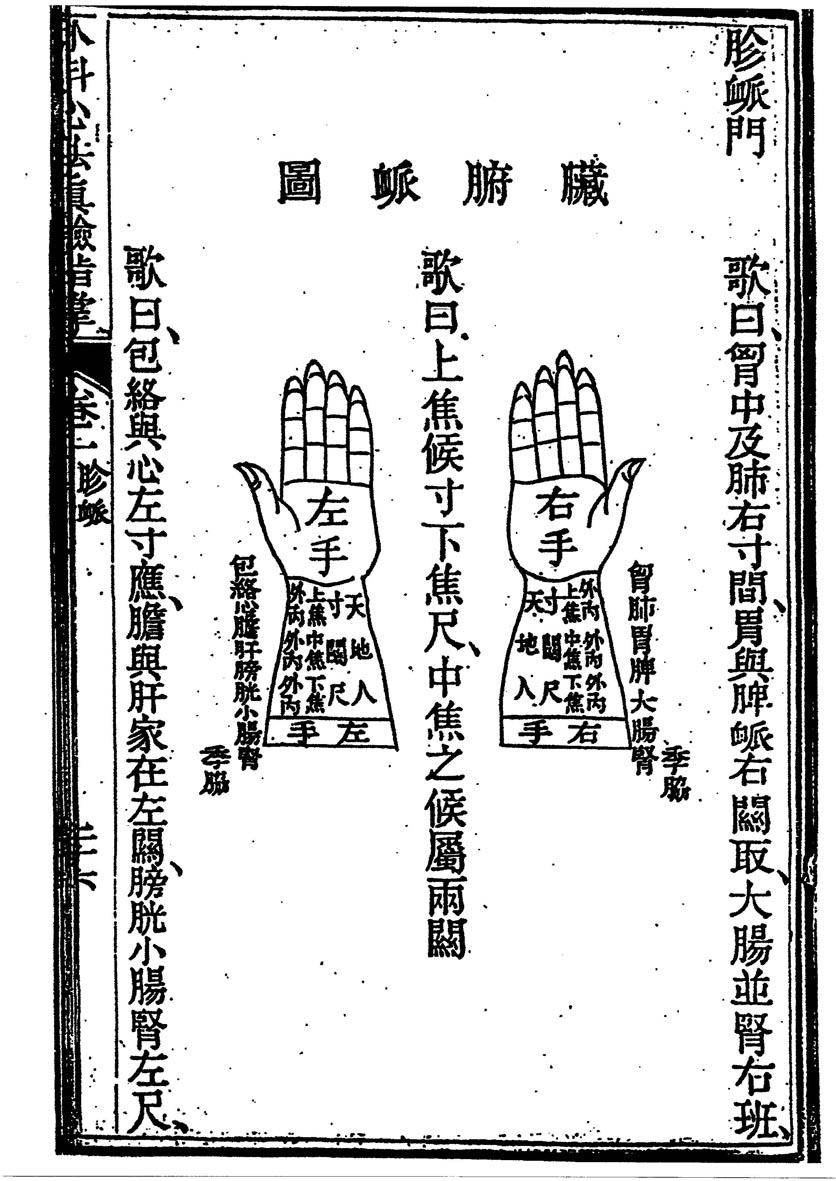 胗衇門
歌曰、胷中及肺右寸間、胃與脾衇右關取、大腸並腎右班、
臓腑衇圖
胷肺胃脾大腸腎
季脇
右手
外內 上焦 寸 天
外內 中焦 關 地
外內 下焦 尺 人
右手
歌曰、上焦候寸下焦尺、中焦之候屬兩關
左手
天 寸 上焦 外內
地 關 中焦 外內
人 尺 下焦 外內
左手
包絡心膽肝膀胱小腸腎
季脇
歌曰、包絡與心左寸應、膽與肝家在左關、膀胱小腸腎左尺、
外科心法真驗指掌
卷二 胗衇